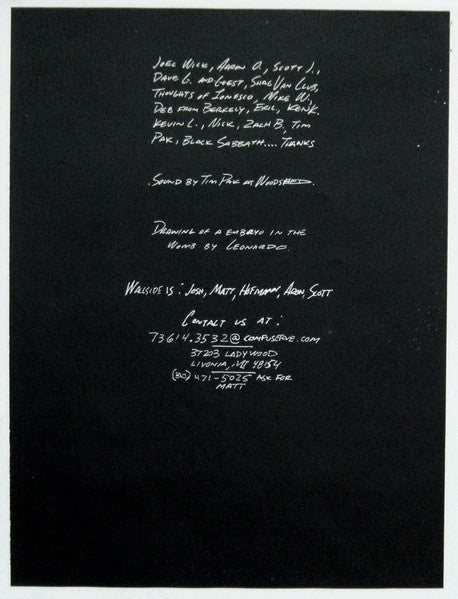 Joel Wick, Aaron O., Scott J.,
Dave G. and Geest, Shal Van Club,
Thoughts of Ionesco, Mike W.,
Deb from Berkely, Eric, Ken K.
Kevin L., Nick, Zach B, Tim
Pak, Black Sabbath.... Thanks
Sound by Tim Pak at Woodshed.
Drawing of a embryo in the
womb by Leonardo.
Wallside is: Josh, Matt, Hofmann, Aron, Scott
Contact us at:
73614.3532@compuserve.com
37203 Ladywood
Livonia, MI 48154
(810) 471-5025 Ask for
Matt